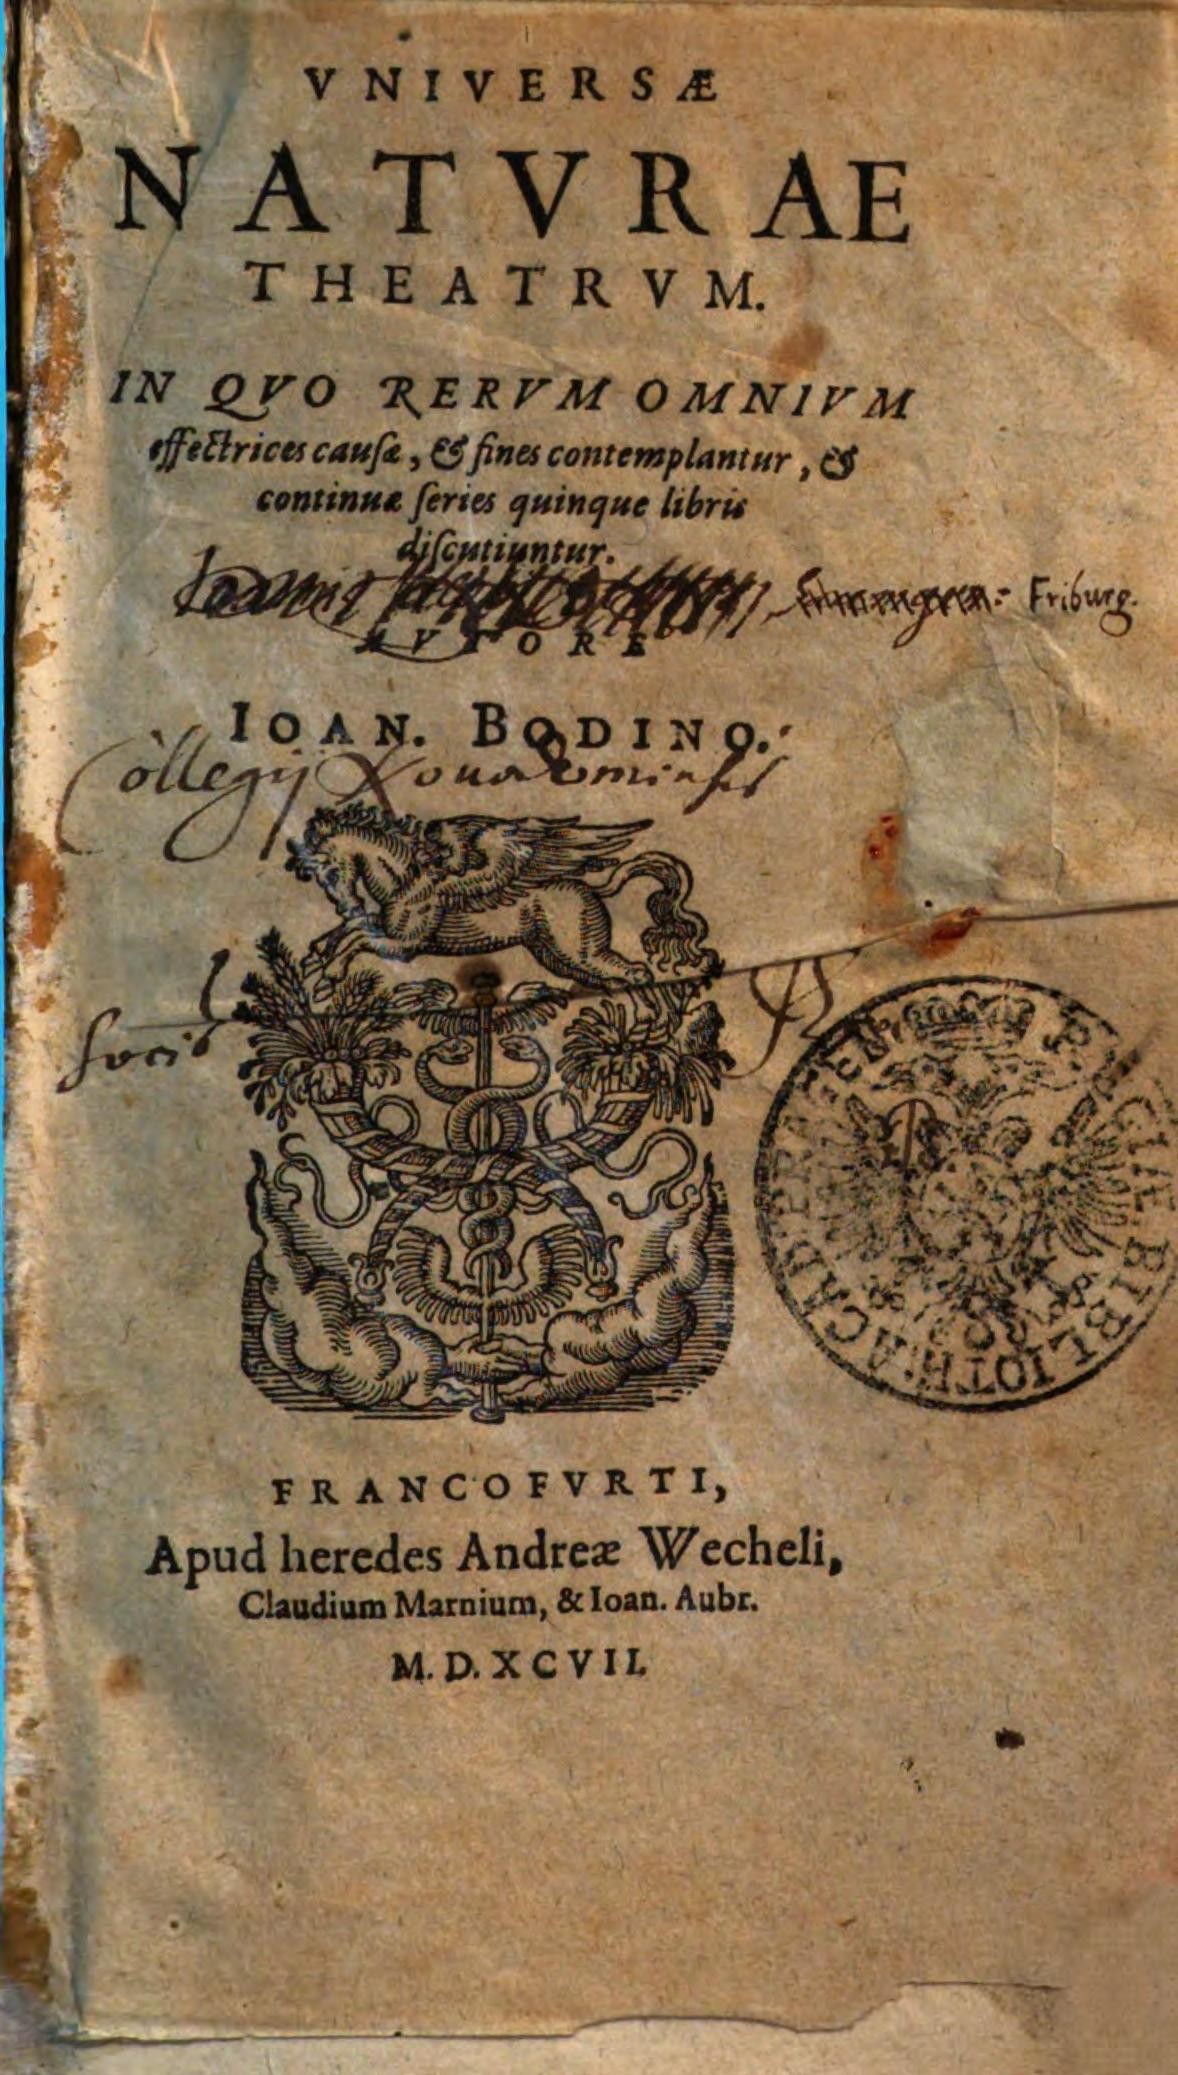 VNIVERSÆ
NATVRAE
THEATRVM.
IN QVO RERVM OMNIVM
effectrices causæ, & fines contemplantur, &
continuæ series quinque libris
discutiuntur.
Ioannis Friburg.
AVTORE
IOAN. BODINO.
Collegij
socis
FRANCOFVRTI,
Apud heredes Andreæ Wecheli,
Claudium Marnium, & Ioan. Aubr.
M. D. XCVII.
BIBLIOTH. ACAD.